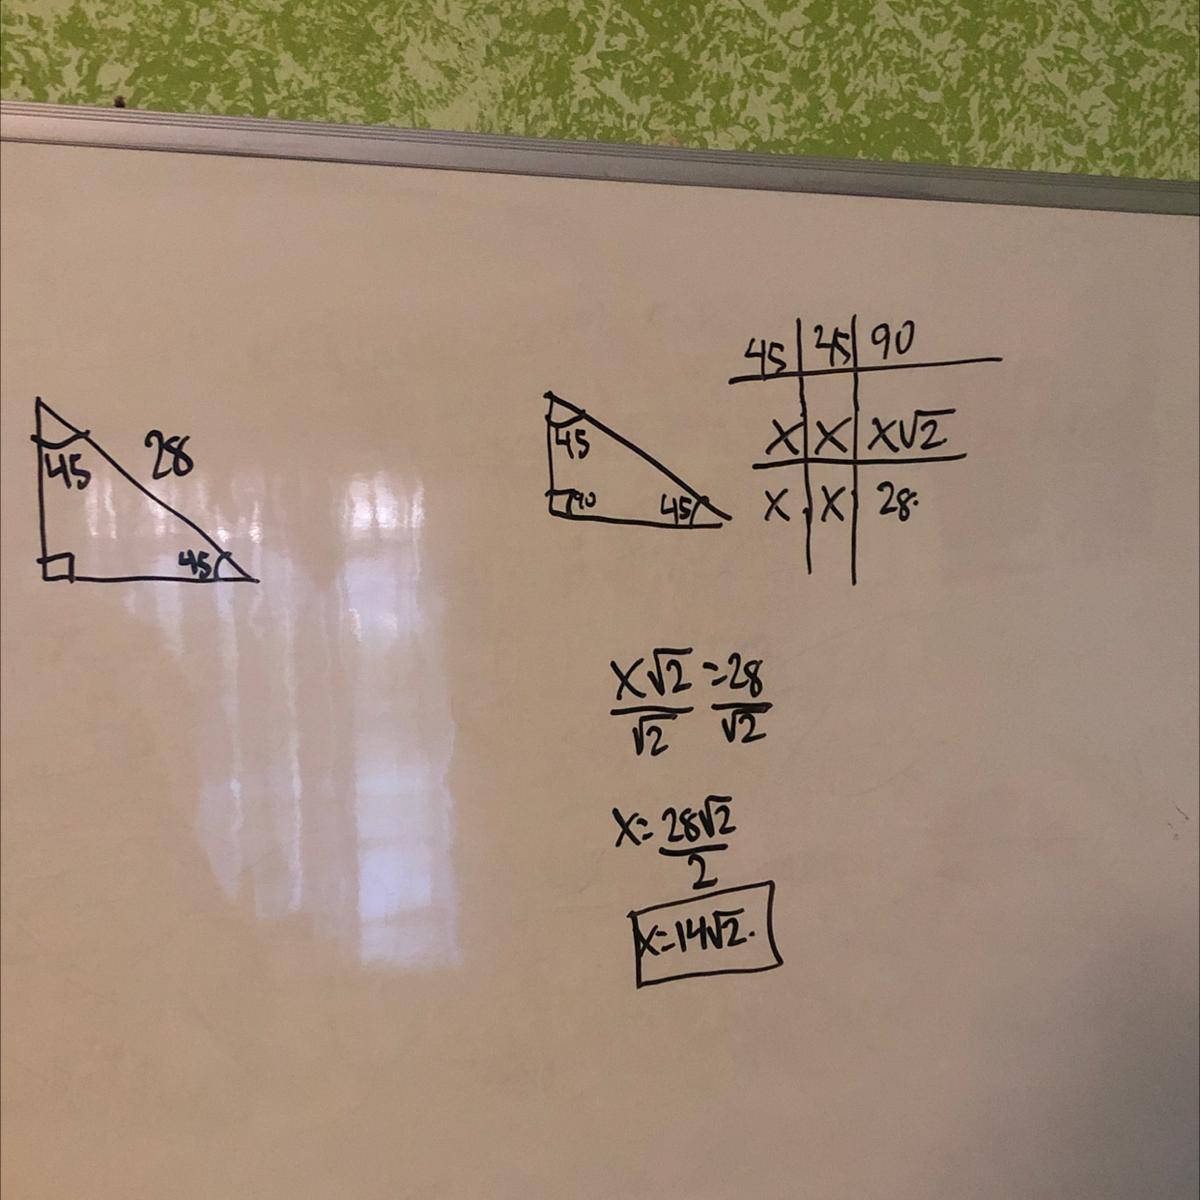 45
28
45
45
90
45
45 | 45 | 90
X | X | X√2
X | X | 28.
X√2 = 28
√2 √2
X = 28√2
2
X = 14√2.